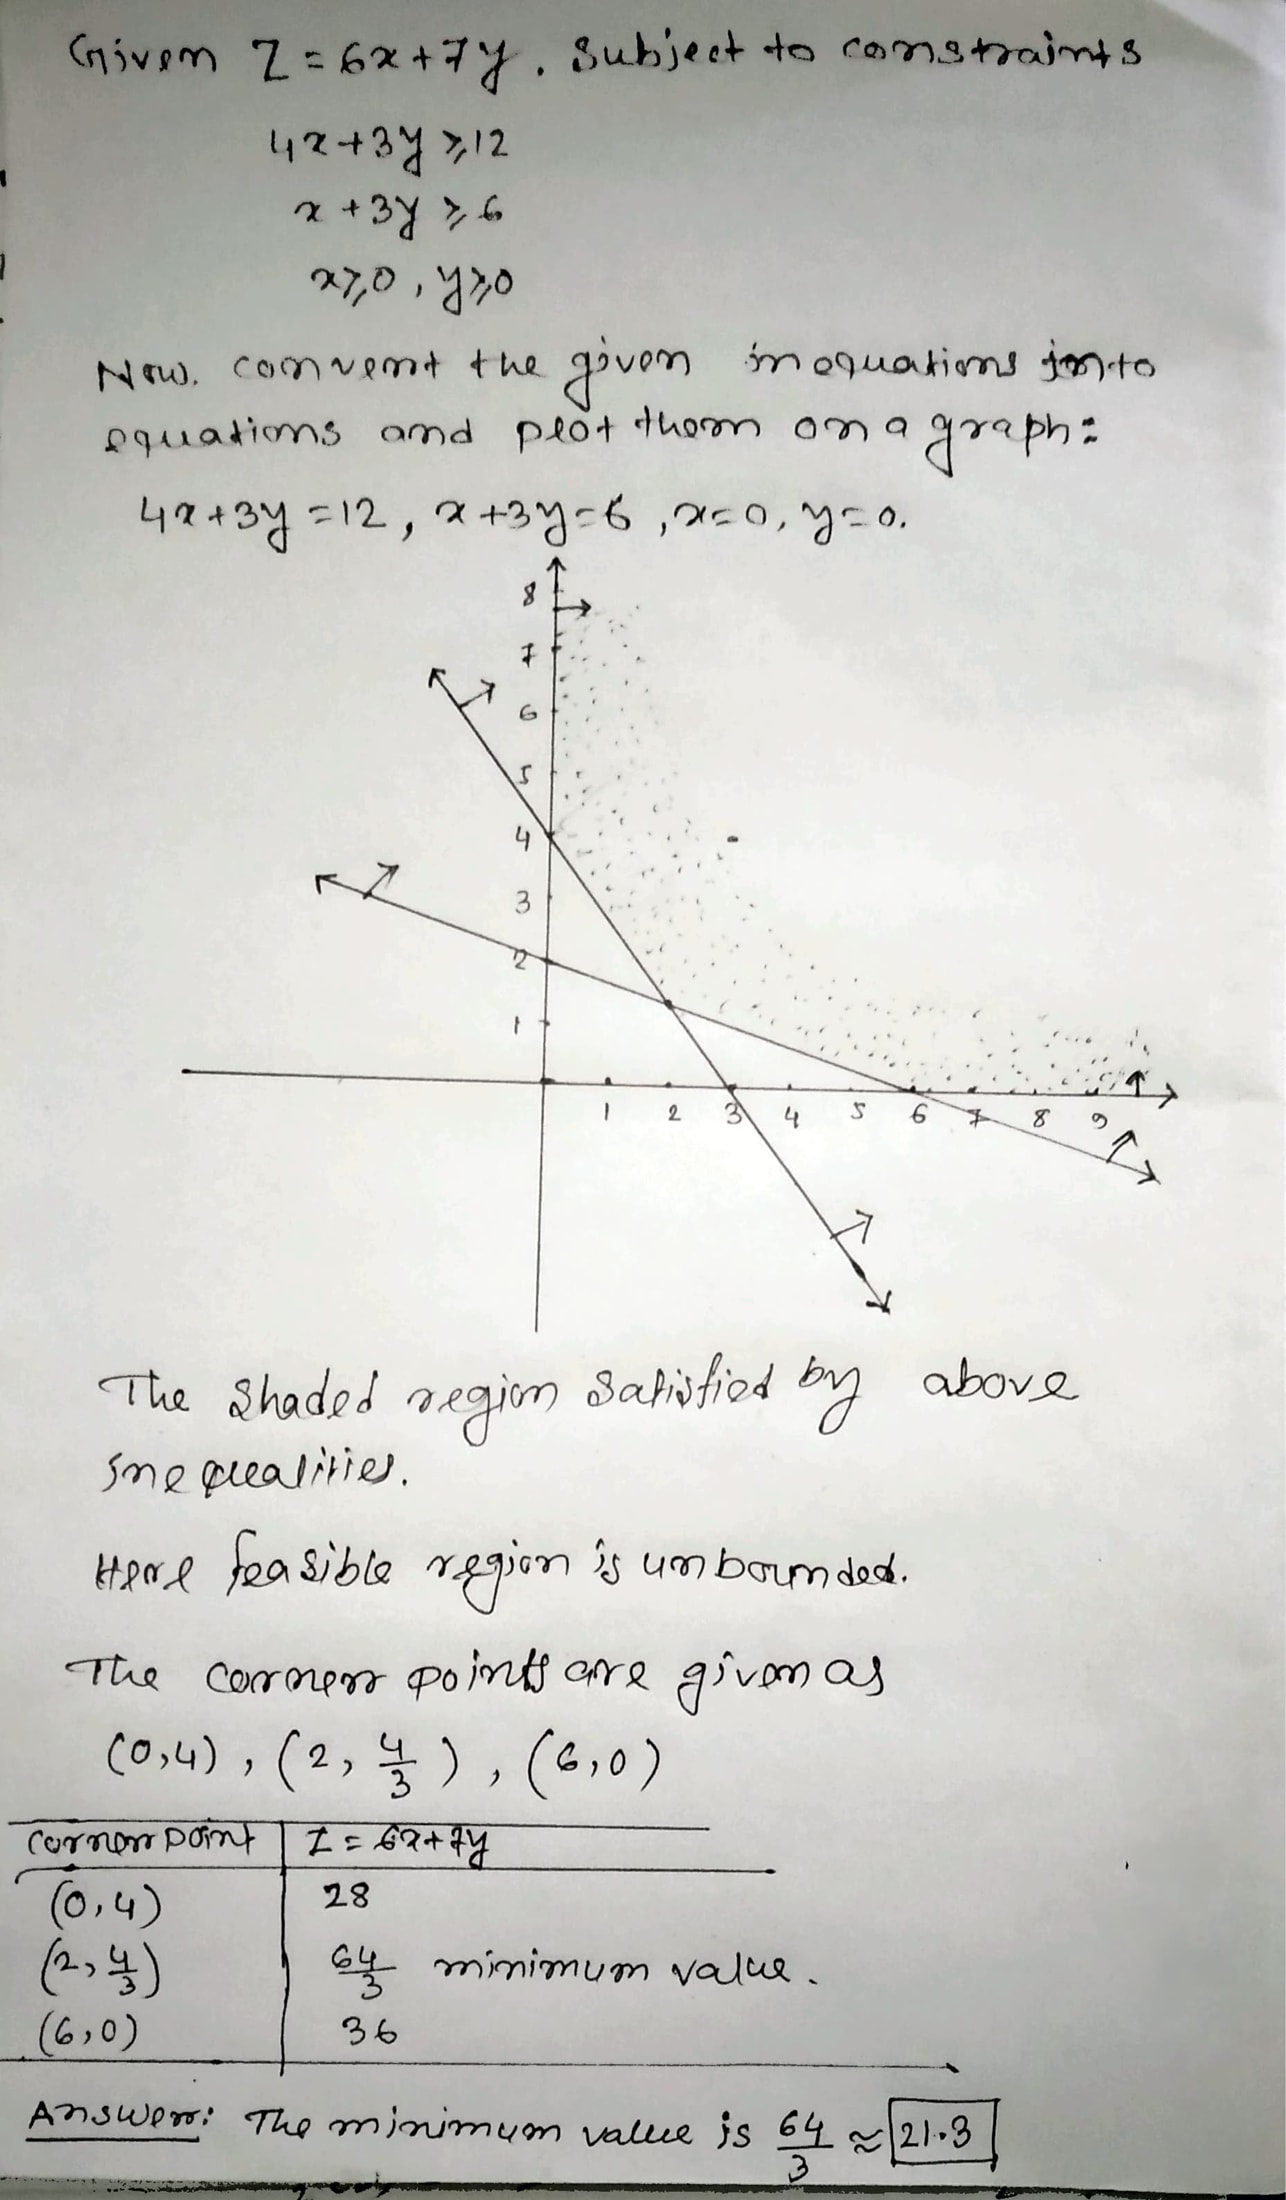 Given Z = 6x+7y. Subject to constraints
4x+3y ≥ 12
x+3y ≥ 6
x≥0, y≥0
Now. convert the given inequations into
equations and plot them on a graph:
4x+3y=12, x+3y=6, x=0, y=0.
8
7
6
5
4
3
2
1
1 2 3 4 5 6 7 8 9
The shaded region satisfied by above
inequalities.
Here feasible region is unbounded.
The corner points are given as
(0,4), (2, 4/3), (6,0)
corner point Z = 6x+7y
(0,4) 28
(2, 4/3) 64/3 minimum value.
(6,0) 36
Answer: The minimum value is 64/3 ≈ 21.3